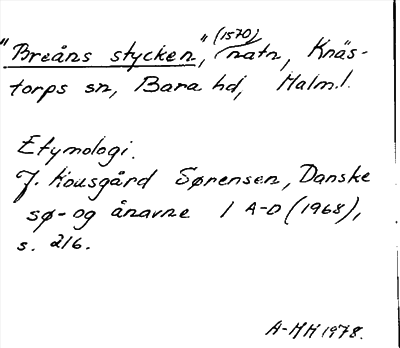 "Breåns stycken," (1570) natn, Knäs-
torps sn, Bara hd, Malm.l.
Etymologi.
J. Kousgård Sørensen, Danske
sø- og ånavne 1 A-D (1968),
s. 216.
A-MH 1978.